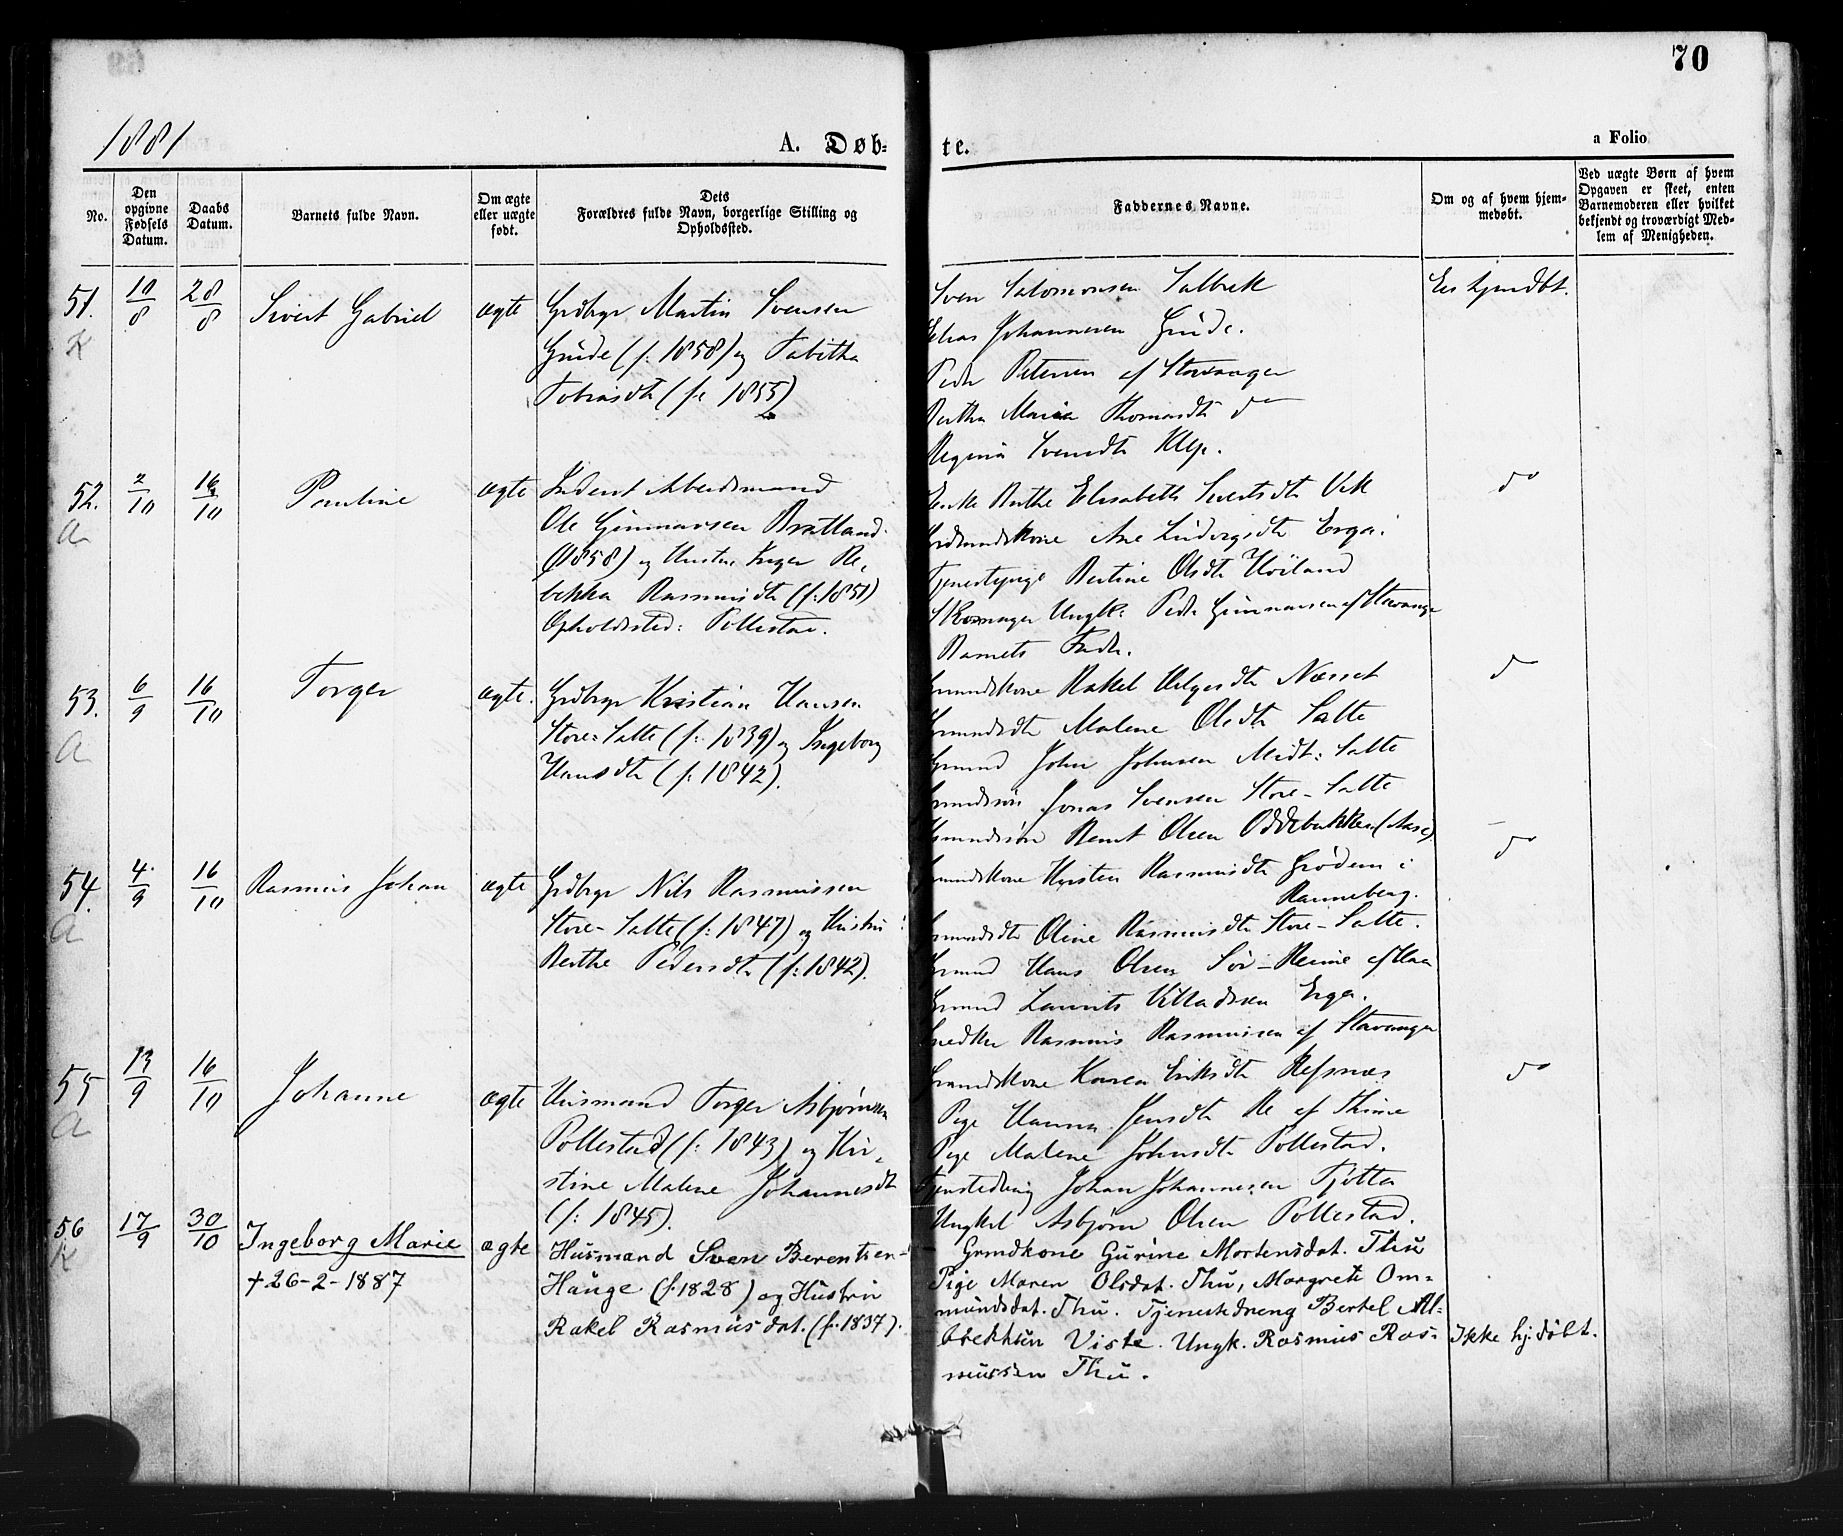 70
1881
A. Døb-
te.
a Folio
No.
Den opgivne Fødsels Datum.
Daabs Datum.
Barnets fulde Navn.
Om ægte eller uægte født.
Dets Forældres fulde Navn, borgerlige Stilling og Opholdssted.
Faddernes Navne.
Om og af hvem hjem-
medøbt.
Ved uægte Børn af hvem
Opgaven er skeet, enten
Barnemoderen eller hvilket
bekjendt og troværdigt Med-
lem af Menigheden.
51. 10/8 28/8 Sivert Gabriel ægte Grdbgr Martin Svensen
K
Grude (f: 1858) og Tabitha
Tobiasdt (f: 1855)
Sven Salomonsen Salbek
Elias Johannesen Grude.
Peder Petersen af Stavanger
Bertha Maria Thomasdt do
Regina Svensdt Klep.
52. 2/10 16/10 Pauline ægte
A
Ole Gunnarsen Bratland
(1858) og Hustru Inger Re-
bekka Rasmusdt (f: 1851)
Opholdssted: Pollestad.
Enke Berthe Elisabeth Sivertsdt Vik do
Grdmandskone Ane Ludvigsdt Erga.
Tjenestepige Bertine Olsdt Høiland
Skomager Ungk: Peder Gunnarsen af Stavanger
Barnets Fader.
53. 6/9 16/10 Torger ægte. Grdbgr Kristian Hansen
A
Store-Salte (f: 1839) og Ingeborg
Hansdt (f: 1842).
Grmandskone Rakel Helgesdt Næsset do
Grmandsdt Malene Olsdt Salte
Grmand John Johnsen Midt-Salte
Grmandssøn Jonas Svensen Store-Salte
Grmandssøn Bernt Olsen Oddebakken (Aase)
54. 4/9 16/10 Rasmus Johan ægte Grdbgr Nils Rasmussen
A
Store-Salte (f: 1847) og Hustru
Berthe Pedersdt (f: 1842).
Grmandskone Kirsten Rasmusdt Grødem i do
Ranneberg.
Grmandsdt Oline Rasmusdt Store-Salte.
Grmand Hans Olsen Sør-Reime af Haa
Grmand Laurits Villadsen Erga.
Snedker Rasmus Rasmussen af Stavanger
55 13/9 16/10 Johanne ægte Husmand Torger Asbjørnsen
A
Pollestad (f: 1843) og Kri-
stine Malene Johannesdt
(f: 1845).
Grmandskone Karen Eriksdt Refsnæs do
Pige Hanna Jensdt Re af Thime
Pige Malene Johnsdt Pollestad.
Tjenestedreng Johan Johannesen Tjøtta
Ungkel Asbjørn Olsen Pollestad.
56 17/9 30/10 Ingeborg Marie ægte Husmand Sven Berentsen
K
† 26-2-1887
Hauge (f. 1828) og Hustru
Rakel Rasmusdat. (f. 1837).
Grmdkone Gurine Mortensdat. Thu
Pige Maren Olsdat. Thu, Margrete Om-
mundsdat. Thu. Tjenestedreng Bertel Al-
brektsen Viste. Ungk. Rasmus Ras- Ikke hj.døbt.
mussen Thu.